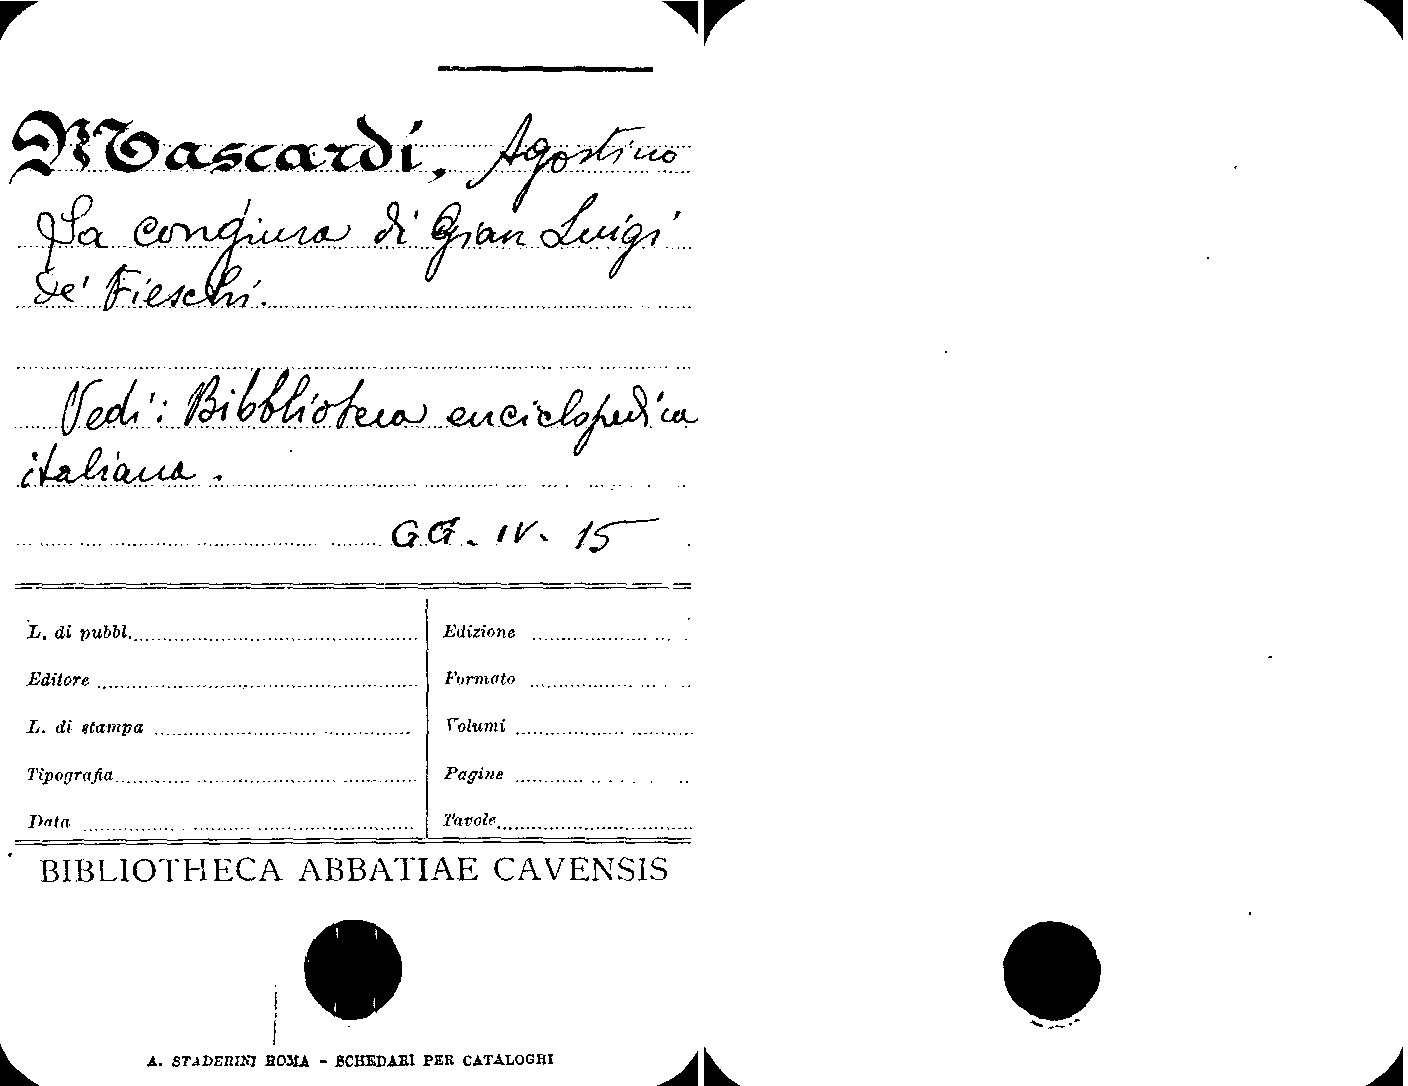 Mascardi, Agostino
La congiura di Gian Luigi
de' Fieschi.
Vedi: Bibblioteca enciclopedica
italiana.
GG. IV. 15
L. di pubbl.
Edizione
Editore
Formato
L. di stampa
Volumi
Tipografia
Pagine
Data
Tavole
BIBLIOTHECA ABBATIAE CAVENSIS
A. STADERINI ROMA - SCHEDARI PER CATALOGHI